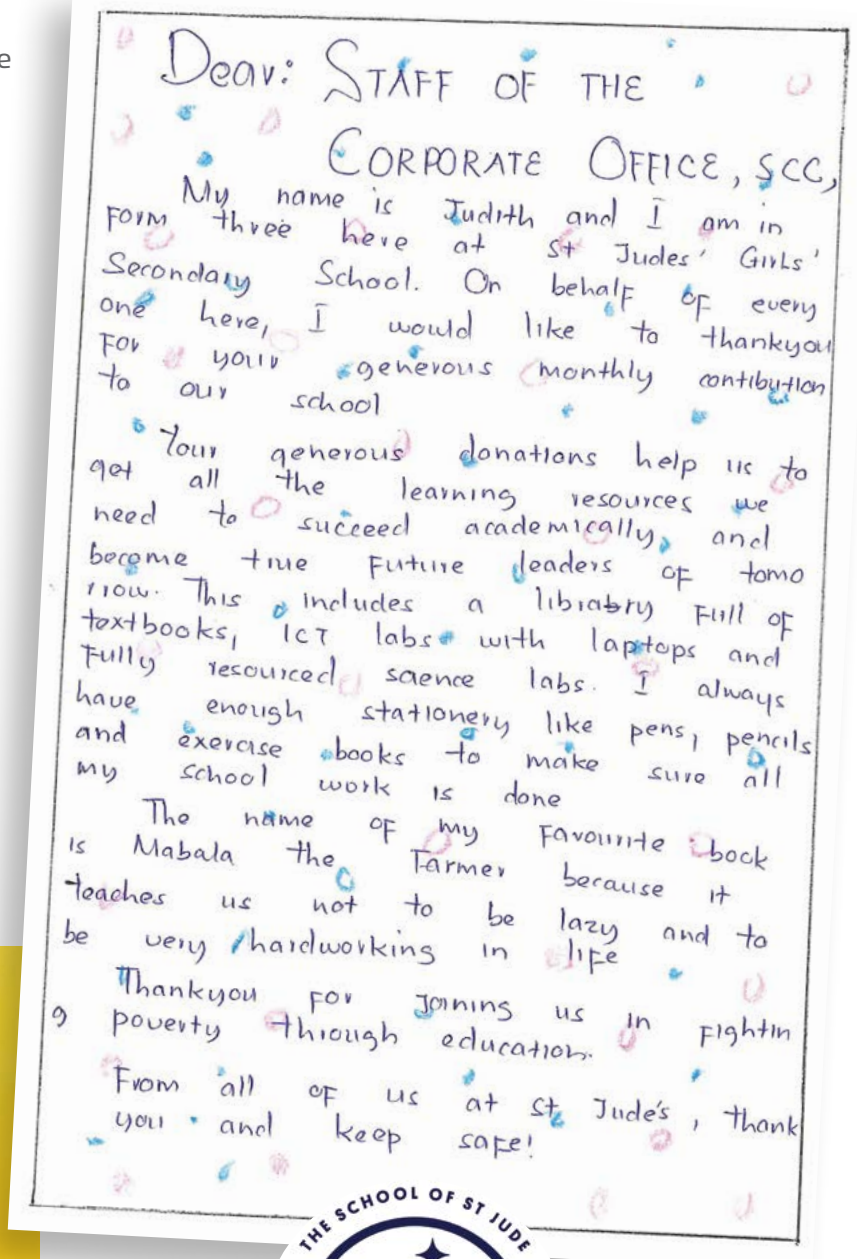 e
Dear: STAFF OF THE
CORPORATE OFFICE, SCC,
My name is Judith and I am in
Form three here at St Judes' Girls'
Secondary School. On behalf of every
one here, I would like to thankyou
For your generous monthly contibution
to our school
Your generous donations help us to
get all the learning resources we
need to succeed academically, and
become true Future leaders of tomo
rrow. This includes a librabry Full of
textbooks, ICT labs with laptops and
Fully resourced science labs. I always
have enough stationery like pens, pencils
and exercise books to make sure all
my school work is done
The name of my Favourite book
is Mabala the Farmer because it
teaches us not to be lazy and to
be very hardworking in life
Thankyou For Joining us in Fightin
g poverty through education.
From all of us at St Jude's, thank
you and keep safe!
THE SCHOOL OF ST JUDE